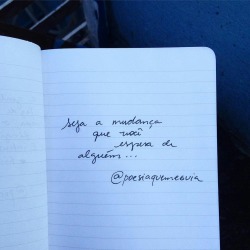 seja a mudança
que você
espera de
alguém...
@poesiaquemeouvia